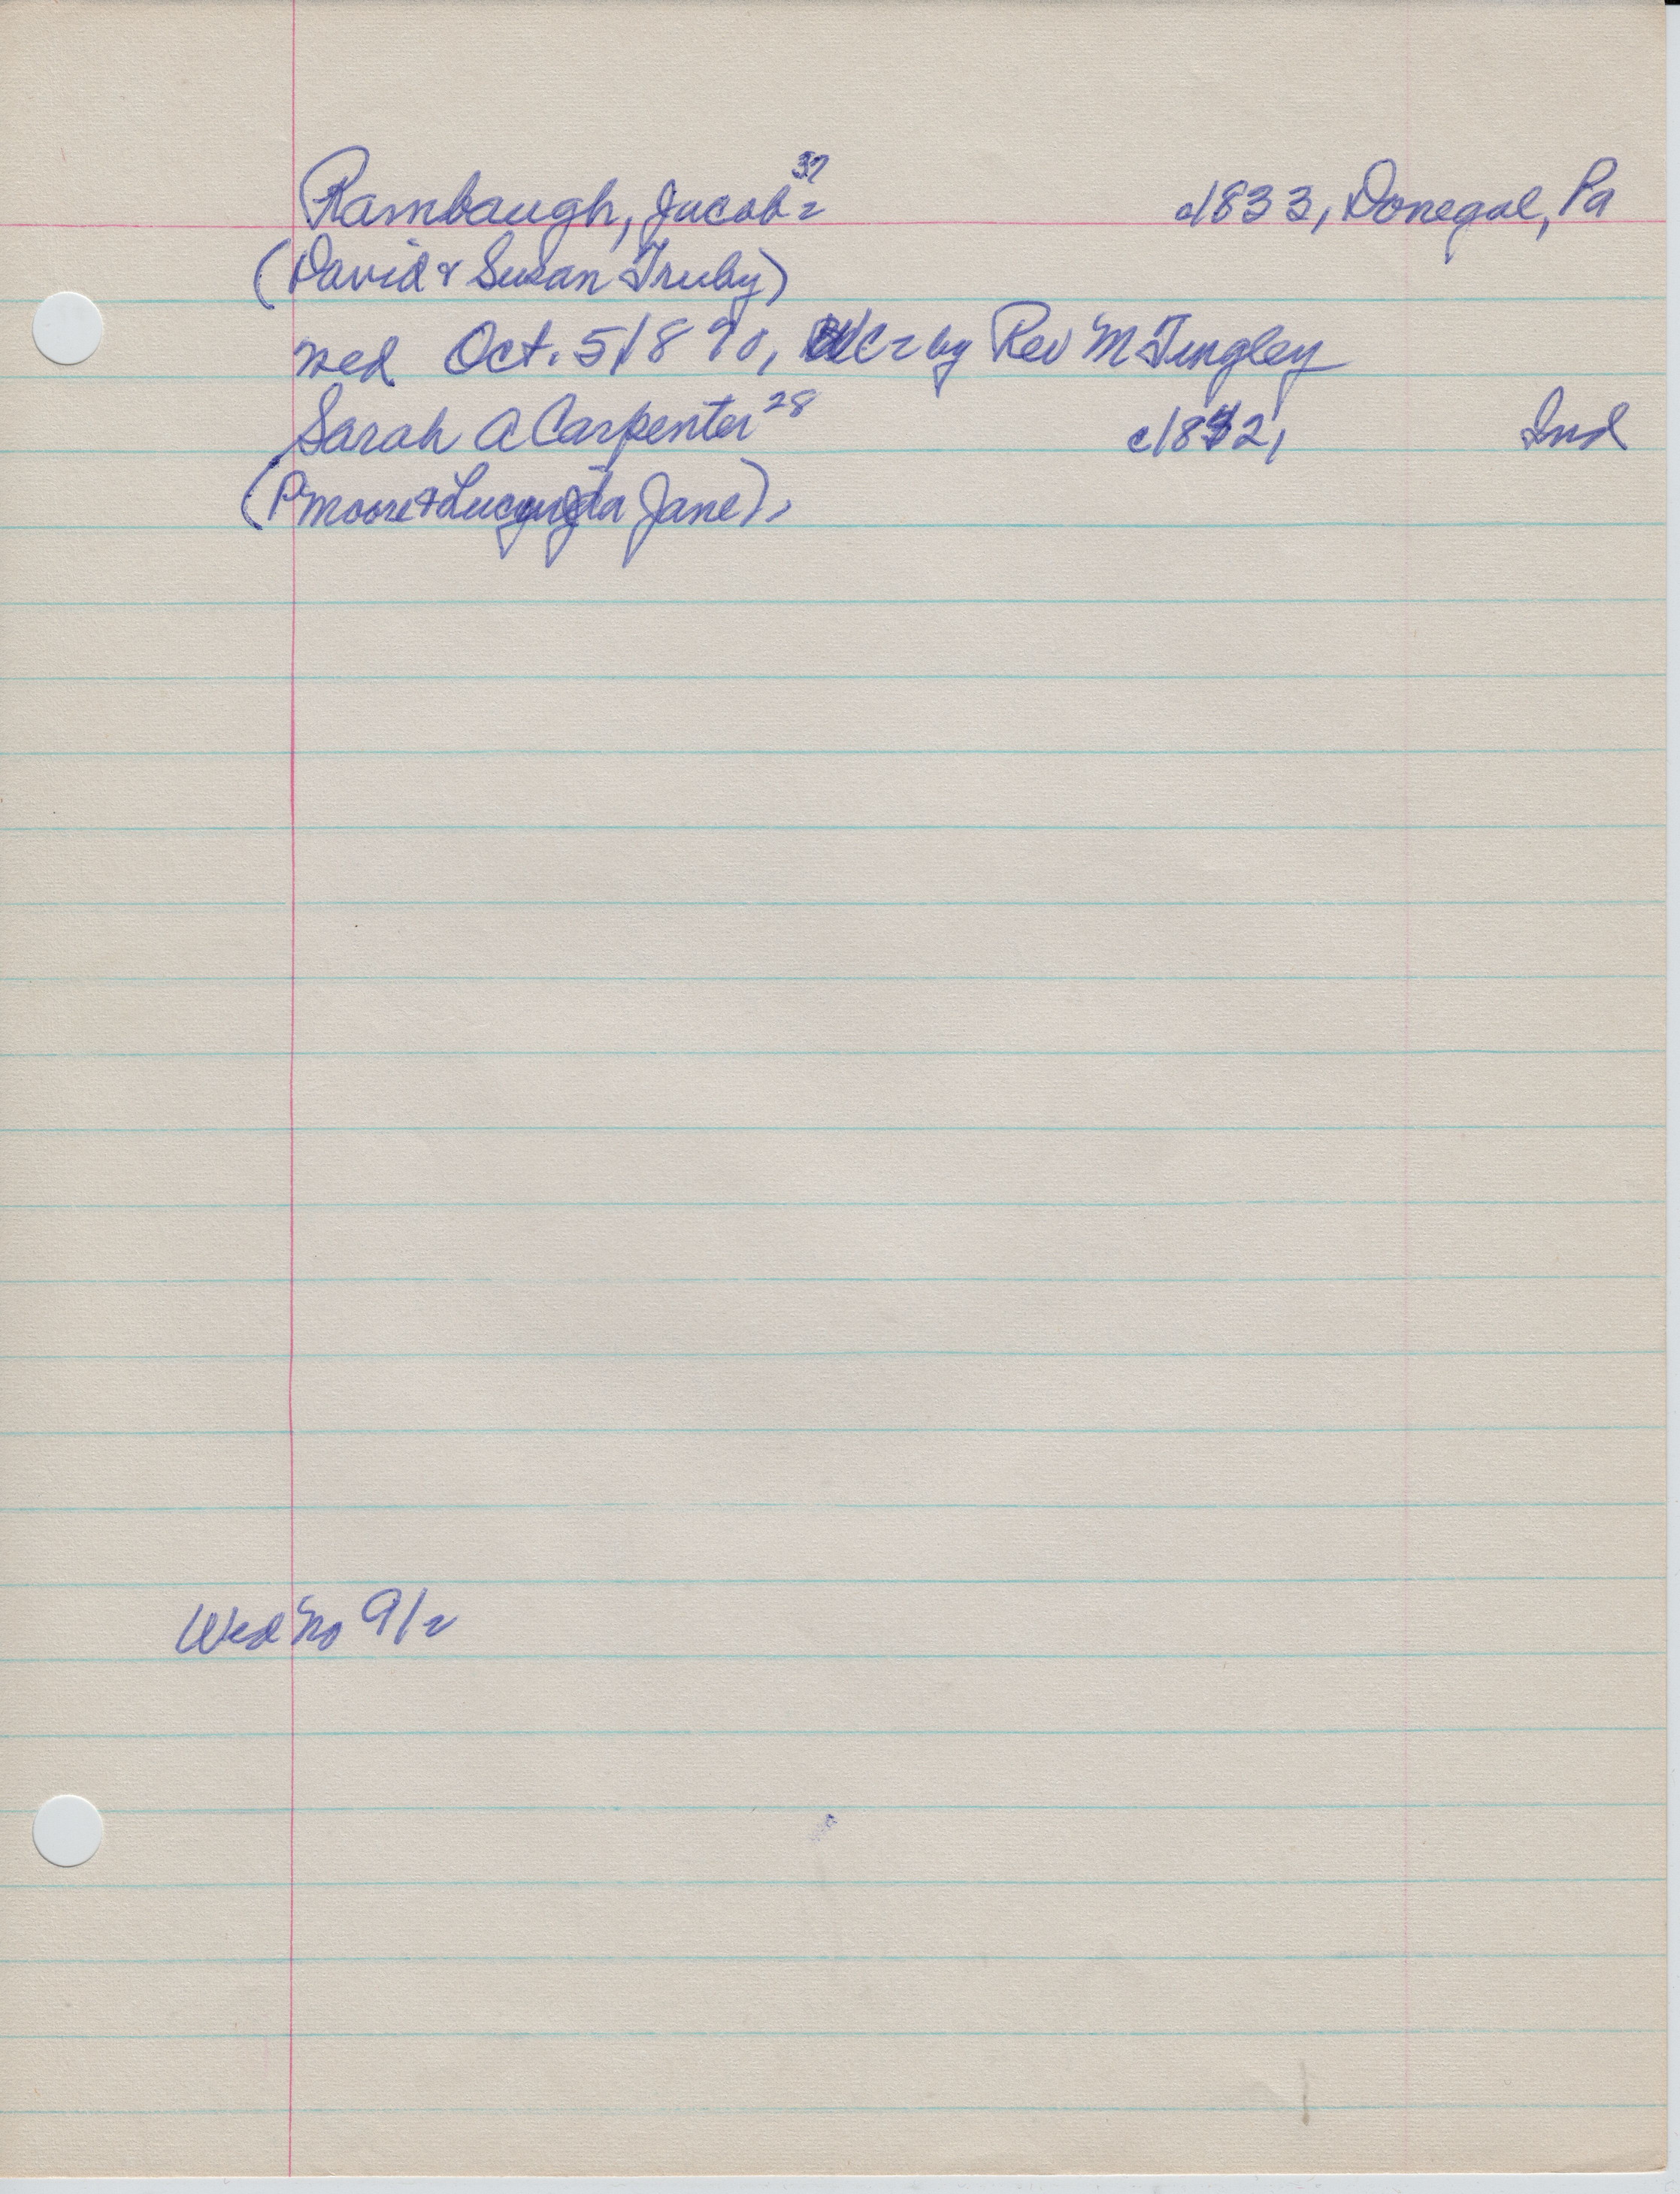 Rambaugh, Jacob 37 c1833, Donegal, Pa
(David & Susan Truby)
wed Oct. 5 1870, by Rev M Tingley
Sarah A Carpenter 28 c1842, Ind
(P Moore & Lucinda Jane),
Wed No 912